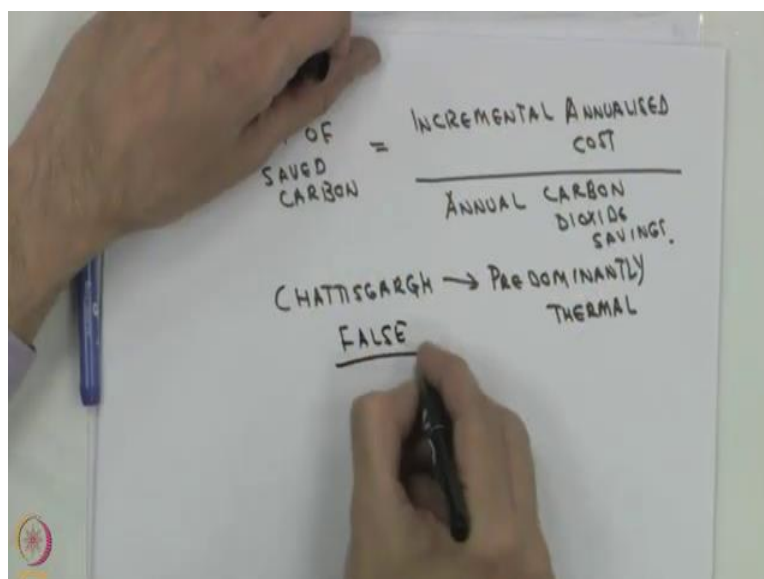 OF
SAVED
CARBON
=
INCREMENTAL ANNUALISED
COST
ANNUAL CARBON
DIOXIDE
SAVINGS.
CHATTISGARGH → PREDOMINANTLY
THERMAL
FALSE